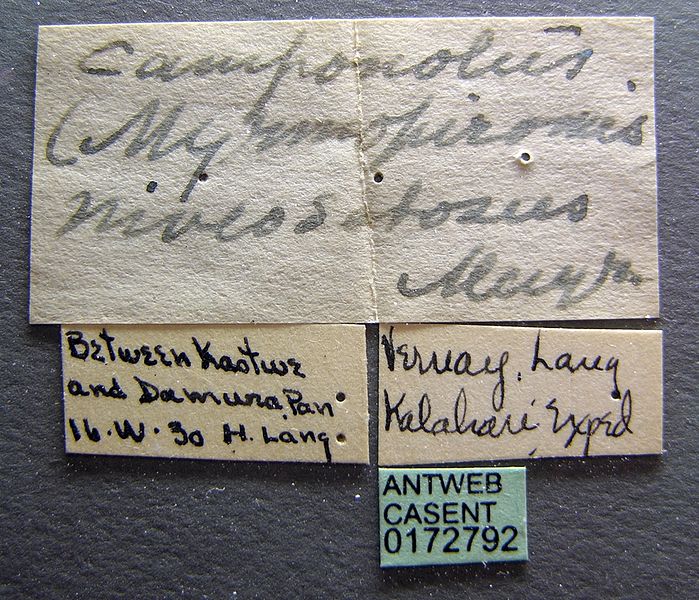 Camponotus
(Myrmopiromis
niveosetosus
Mayr.
Between Kaotwe
and Damara Pan
16.IV.30 H. Lang
Vernay, Lang
Kalahari Exped
ANTWEB
CASENT
0172792